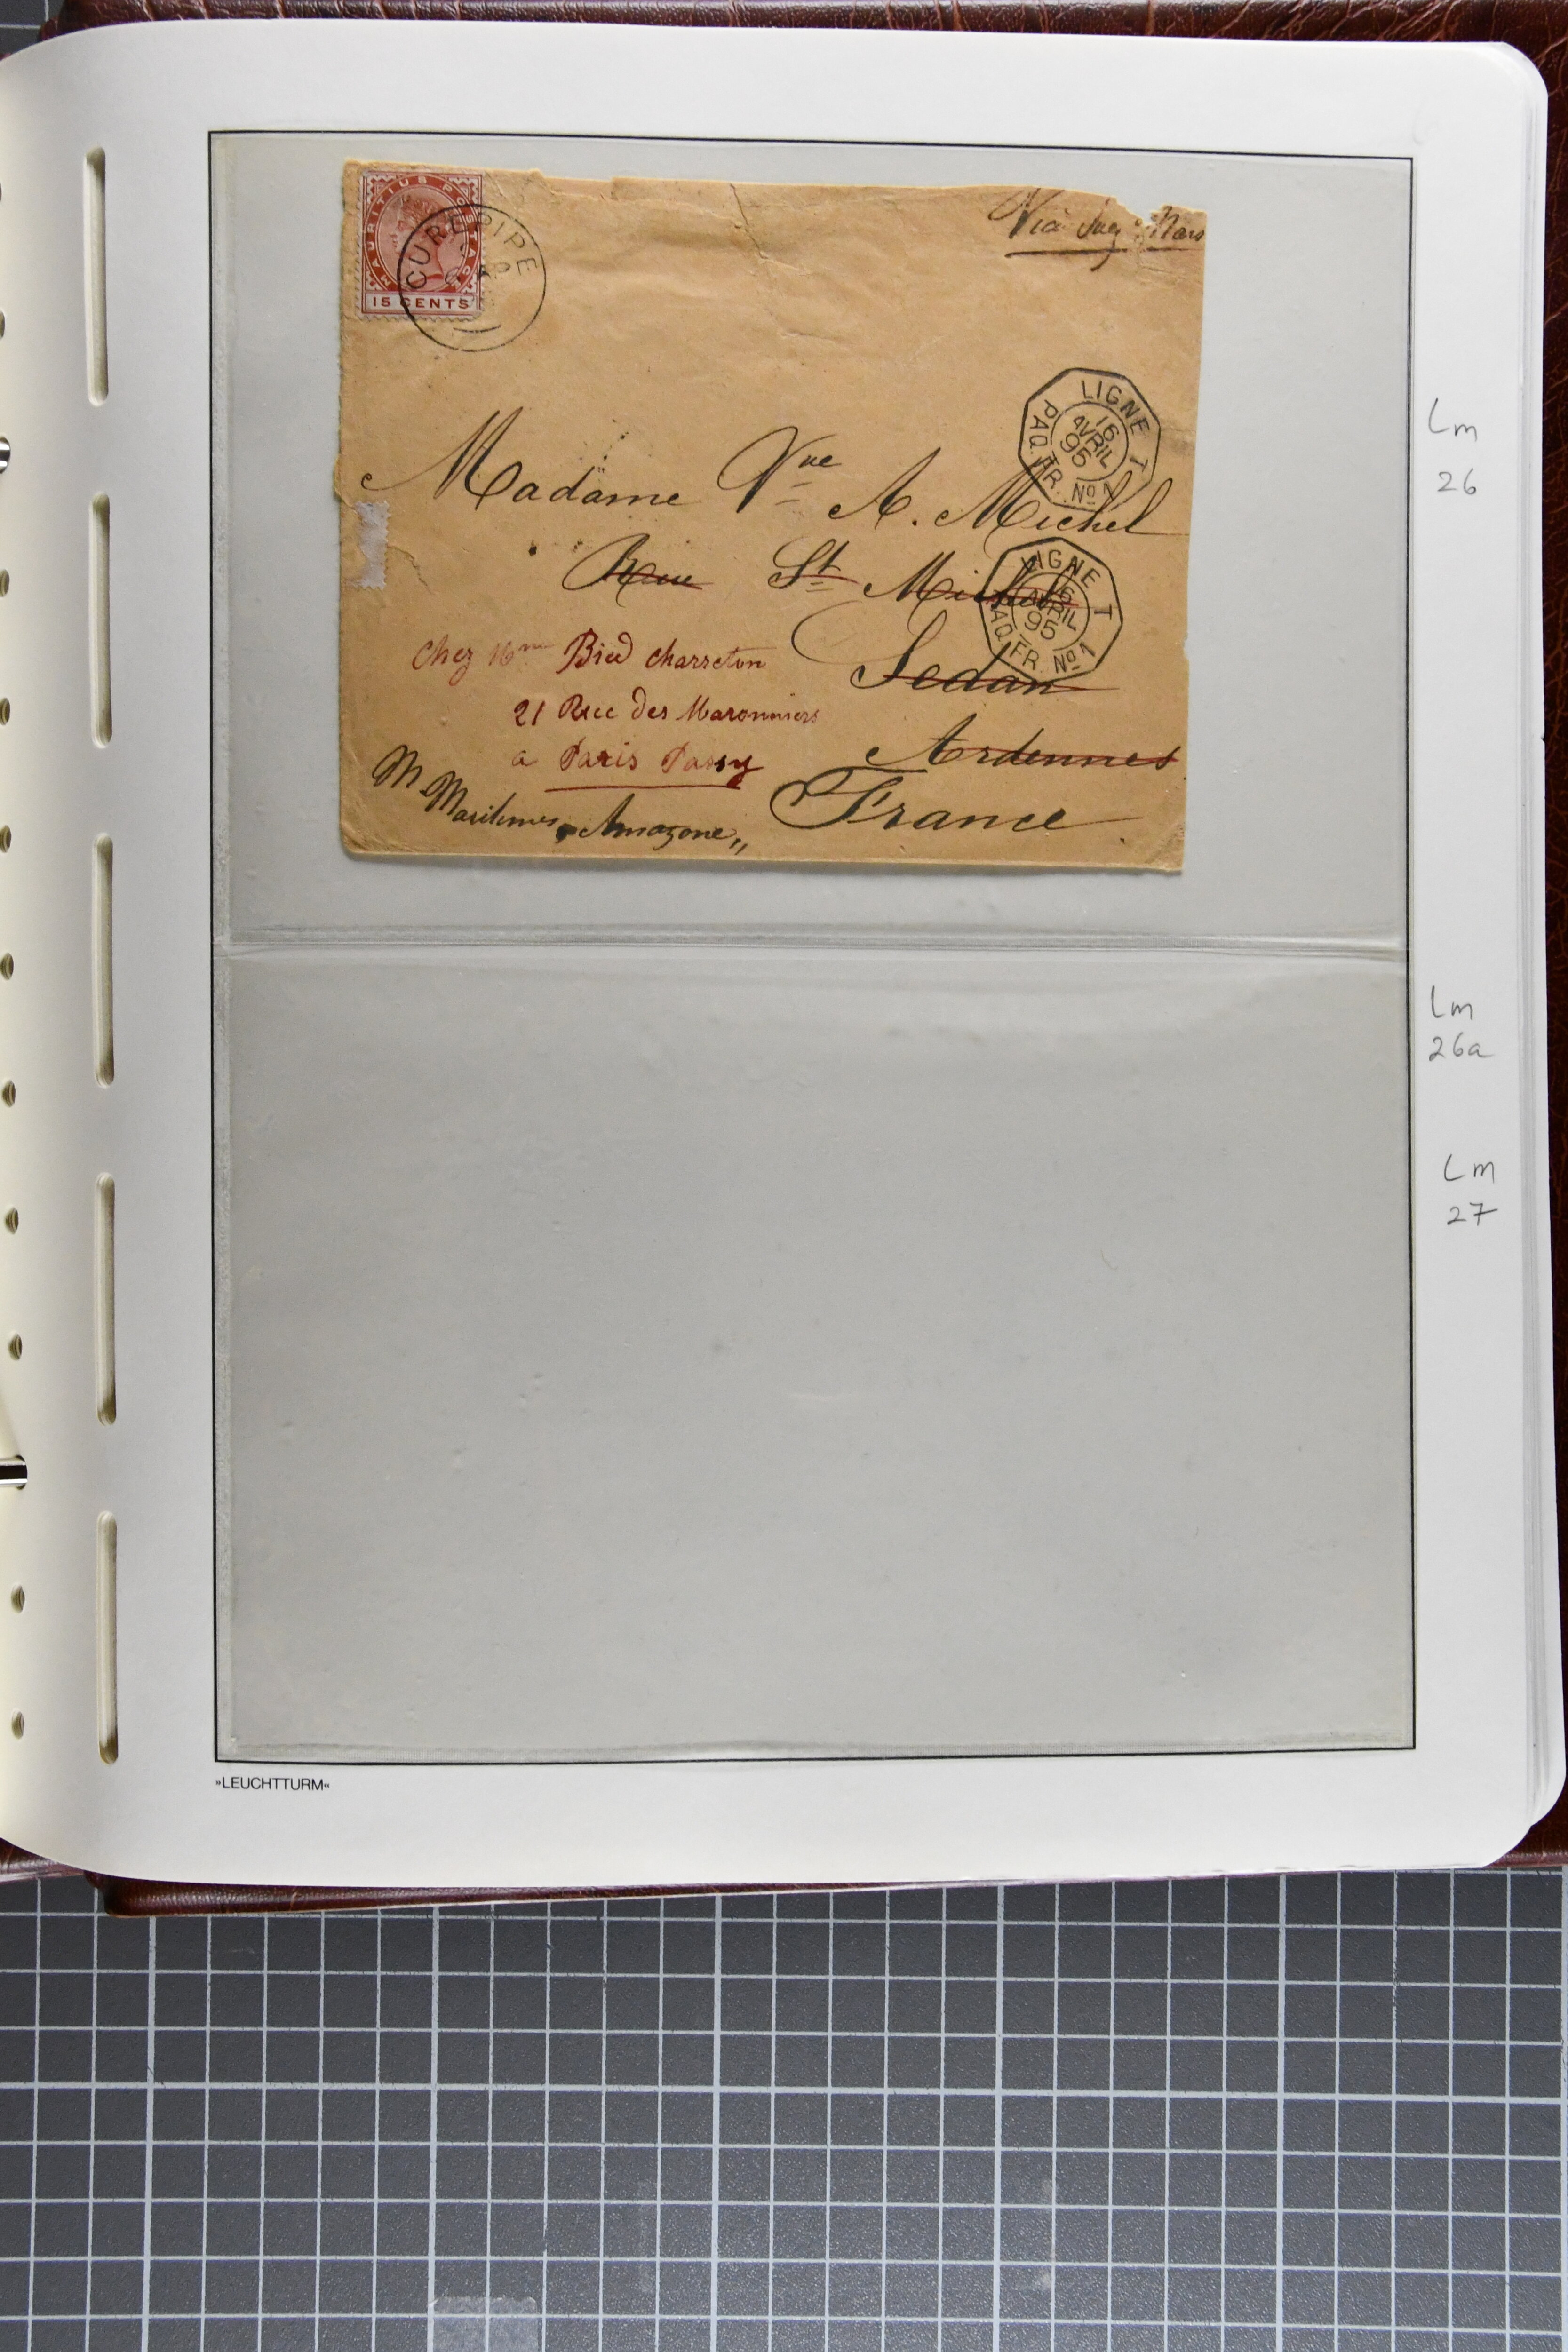 MAURITIUS POSTAGE
15 CENTS
CUREPIPE
AP
Via Suez
LIGNE T
PAQ. FR. No 1
16
AVRIL
95
Madame Vve A. Michel
Rue St Michel
LIGNE T
PAQ. FR. No 1
16
AVRIL
95
Sedan
Ardennes
France
Chez Mme Bied charreton
21 Rue des Maronniers
a Paris Passy
M Maritimes „Amazone„
Lm
26
Lm
26a
Lm
27
»LEUCHTTURM«